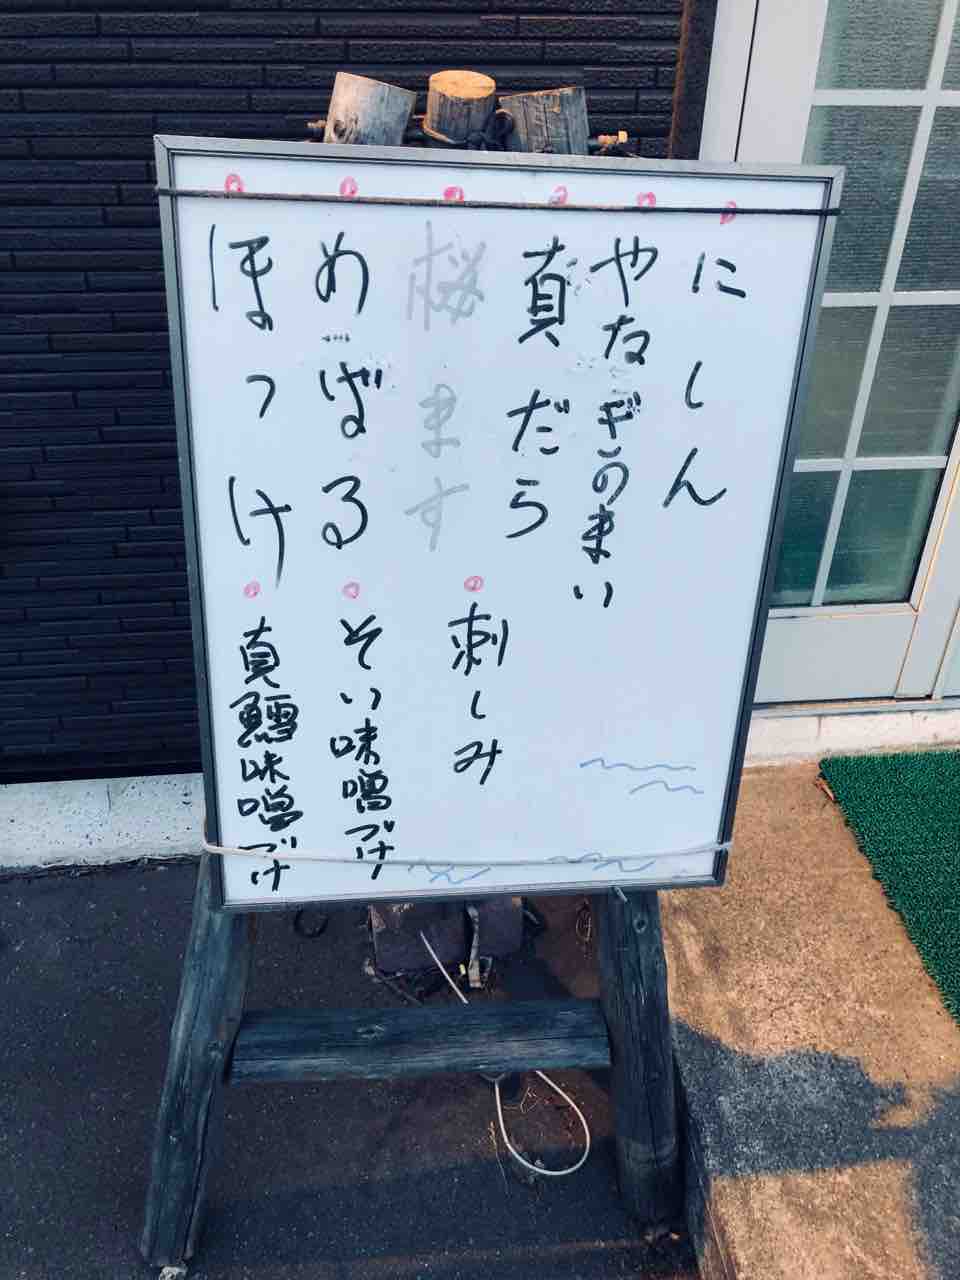 にしん
やなぎのまい
真だら
桜ます
刺しみ
めばる
そい味噌づけ
ほっけ
真鱈味噌づけ